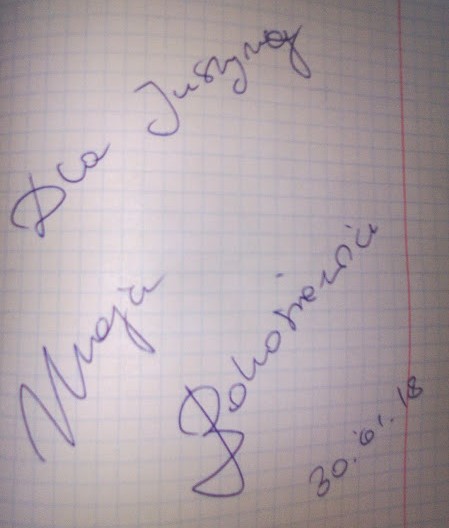 Dla Justyny
Maja
30.01.18